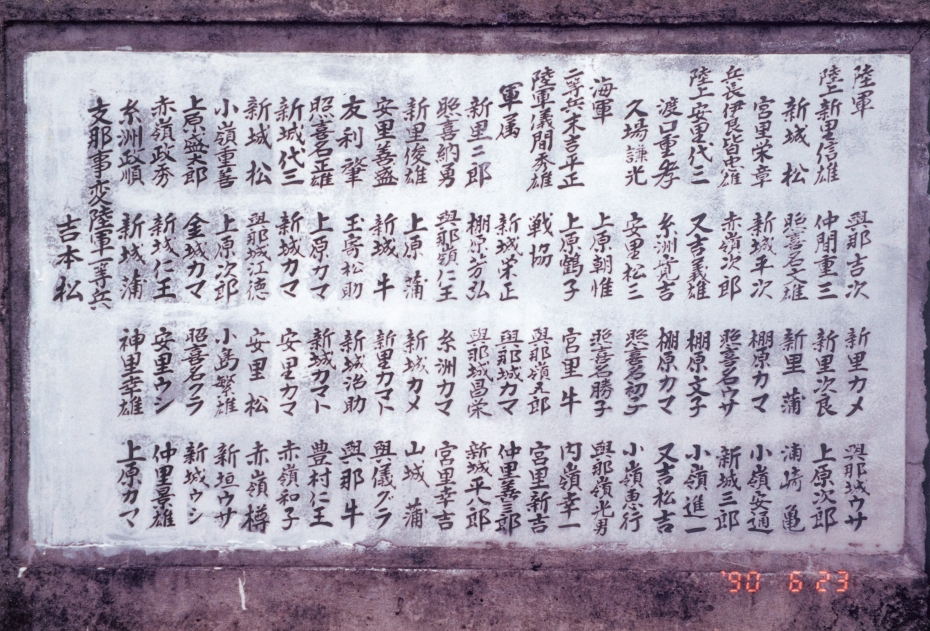 陸軍
陸上新里信雄
新城 松
宮里栄章
兵長伊良皆忠雄
陸上安里代二
渡口重孝
久場謙光
海軍
二等兵末吉平正
陸軍儀間秀雄
軍属
新里二郎
照喜納勇
新里俊雄
安里善盛
友利 肇
照喜名正雄
新城代三
新城 松
小嶺重善
上原盛太郎
赤嶺政秀
糸洲政順
支那事変陸軍一等兵
吉本 松
與那吉次
仲間重三
照喜名文雄
新城平次
赤嶺次郎
又吉義雄
糸洲寛吉
安里松三
上原朝惟
上原鶴子
戦協
新城栄正
棚原芳弘
與那嶺仁王
上原 蒲
新城 牛
玉寄松助
上原カマ
新城カマ
與那城江徳
上原次郎
金城カマ
新城仁王
新城 蒲
新里カメ
新里次良
新里 蒲
棚原カマ
照喜名ウサ
棚原文子
棚原カマ
照喜名初子
照喜名勝子
宮里 牛
與那嶺又郎
與那城カマ
與那城昌栄
糸洲カマ
新城カメ
新里カマト
新城治助
新城カマト
安里カマ
安里 松
小島繁雄
照喜名クラ
安里ウシ
神里幸雄
與那城ウサ
上原次郎
浦崎 亀
小嶺安通
新城三郎
小嶺進一
又吉松吉
小嶺恵行
與那嶺光男
内嶺幸一
宮里新吉
仲里善三郎
新城平八郎
宮里幸吉
山城 蒲
與儀グラ
與那 牛
豊村仁王
赤嶺和子
赤嶺 樽
新垣ウサ
新城ウシ
仲里景雄
上原カマ
'90 6 23